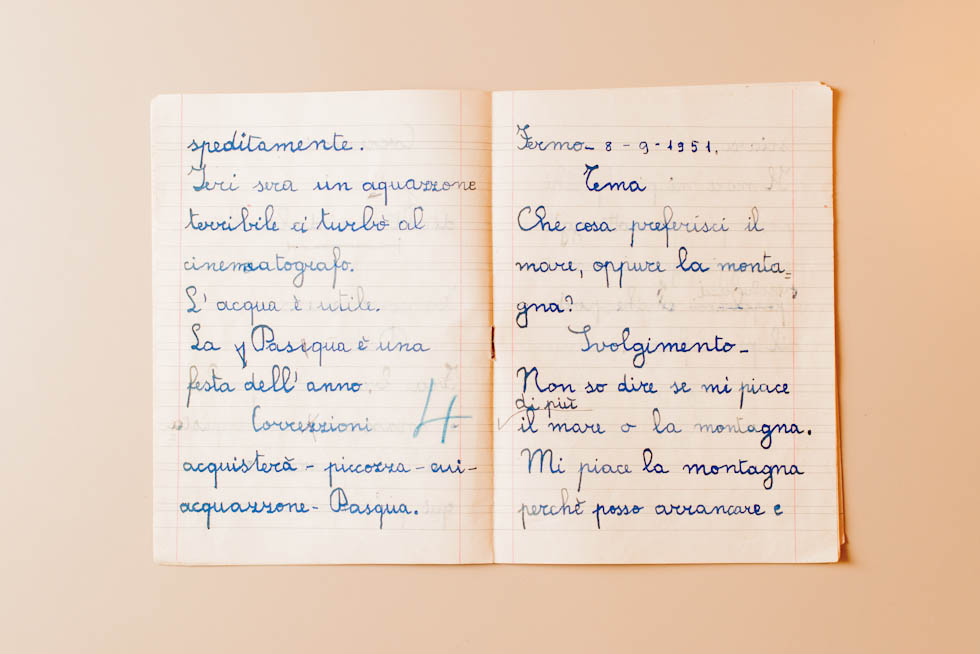 speditamente.
Ieri sera un aquazzone
terribile ci turbò al
cinematografo.
L'acqua è utile.
La Pasqua è una
festa dell'anno.
Correzzioni 4-
acquisterà - piccozza - cui -
acquazzone - Pasqua.
Fermo - 8 - 9 - 1951.
Tema
Che cosa preferisci il
mare, oppure la monta=
gna?
Svolgimento -
Non so dire se mi piace
di più
il mare o la montagna.
Mi piace la montagna
perchè posso arrancare e